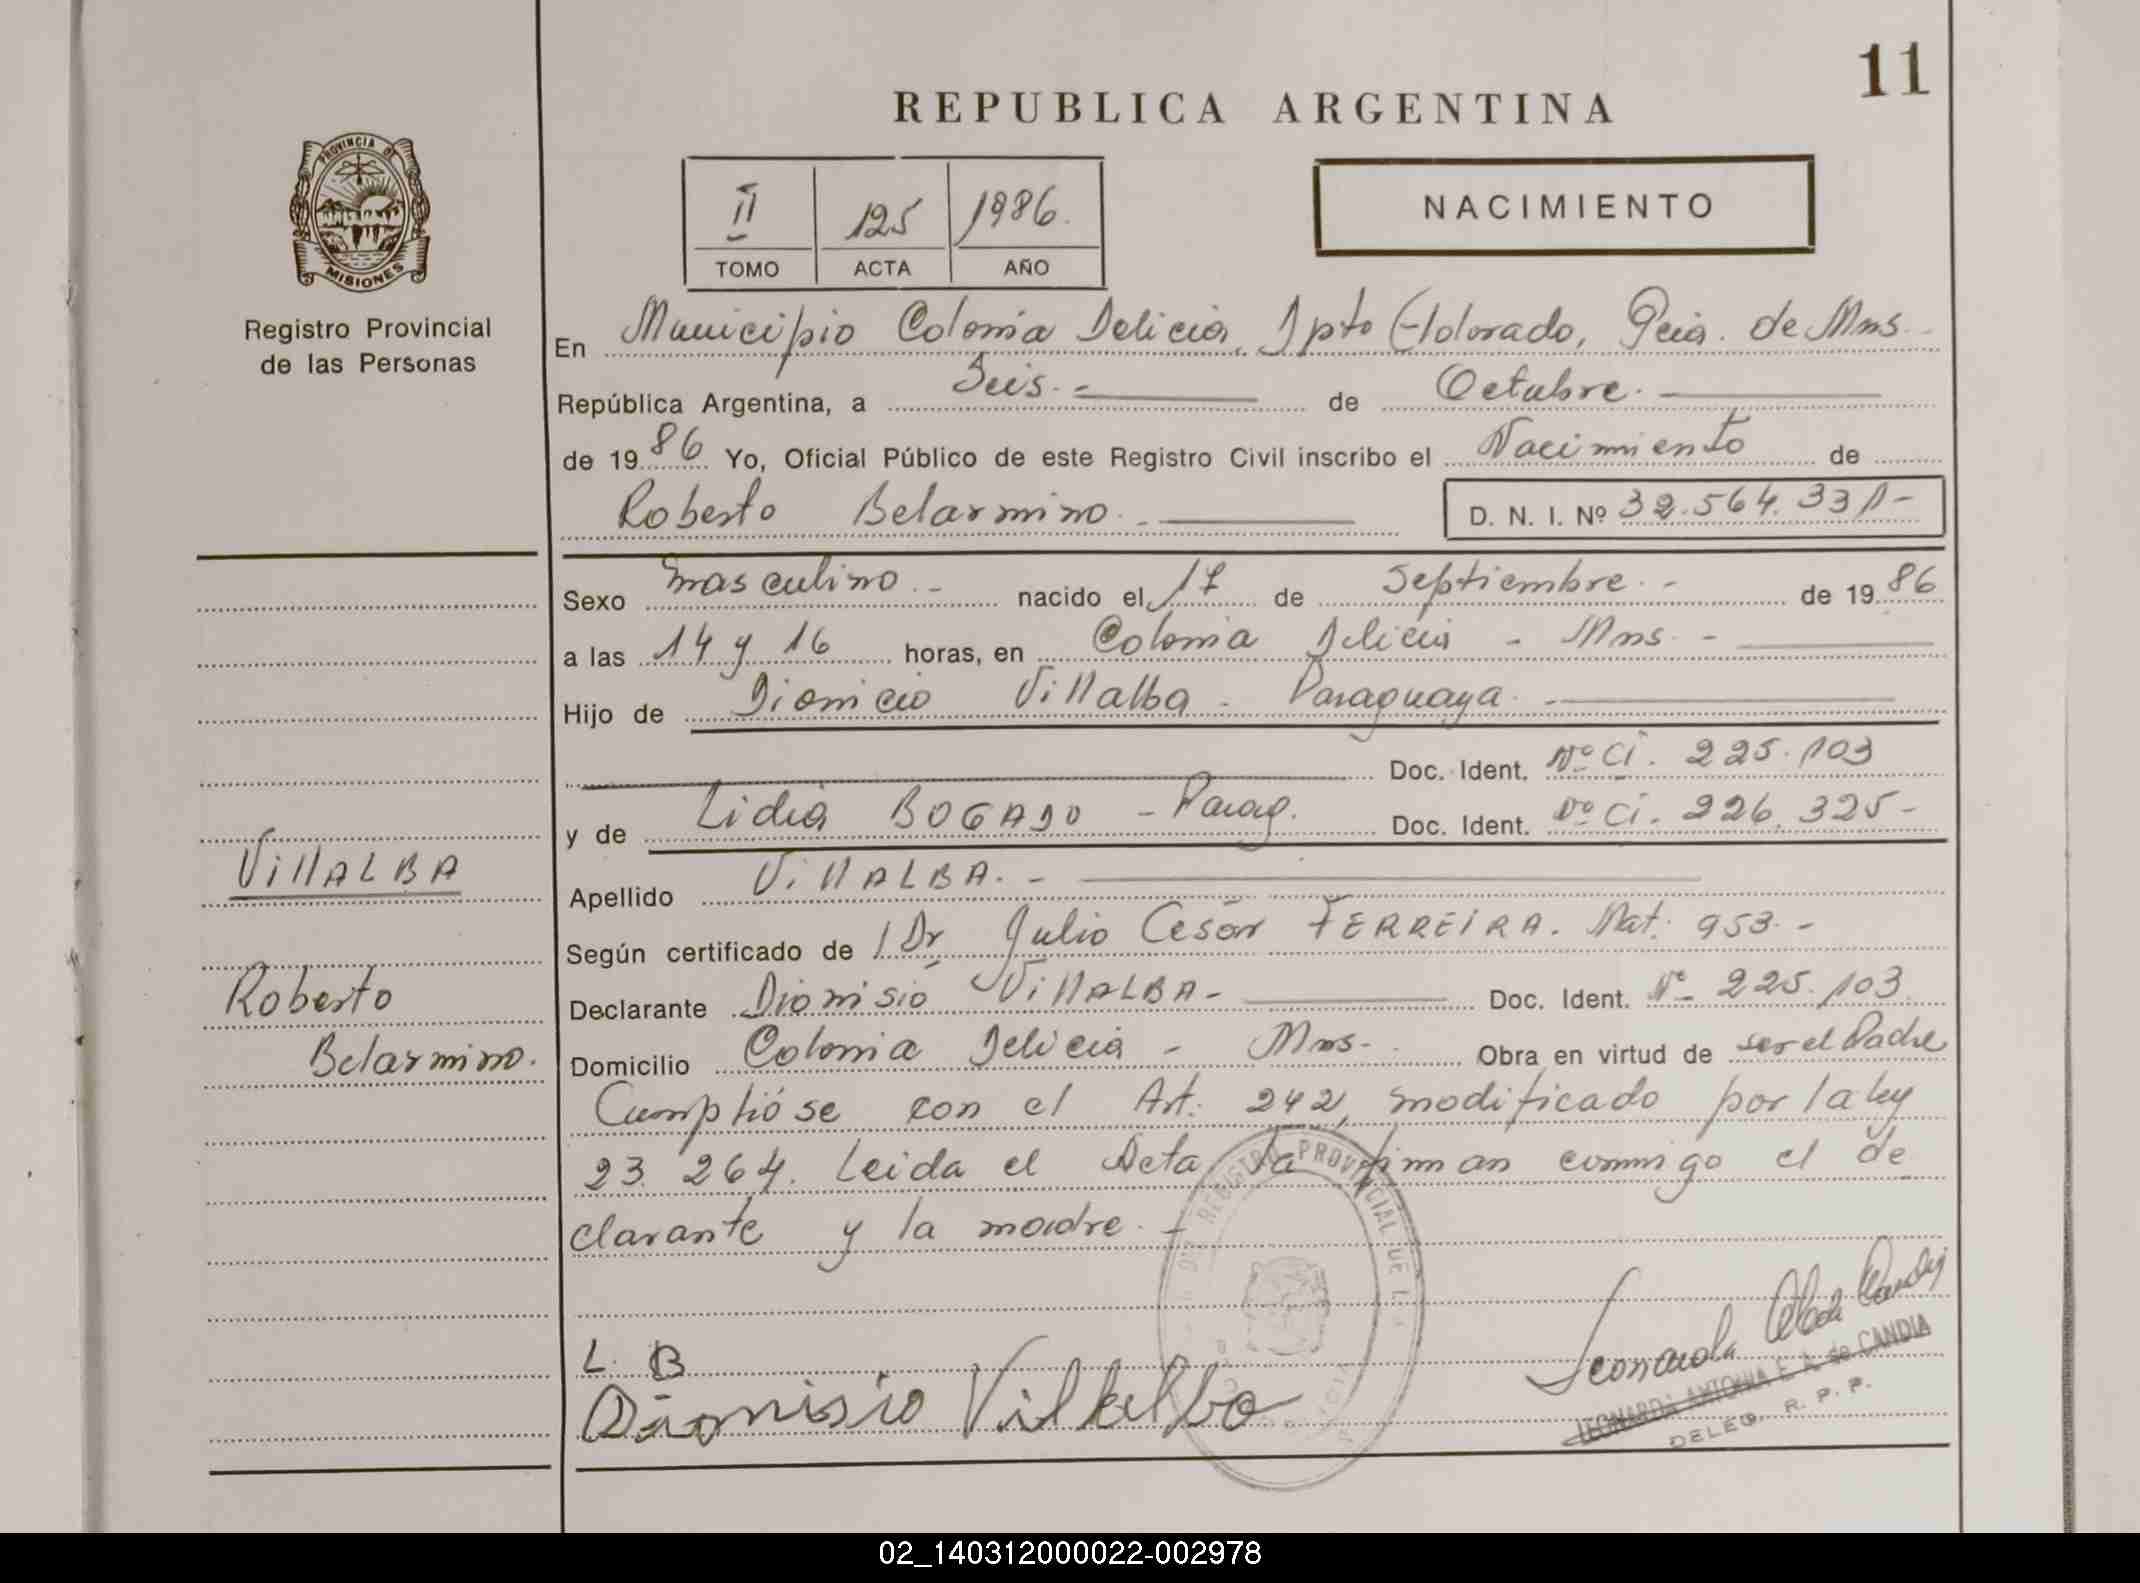 11
REPUBLICA ARGENTINA
PROVINCIA DE
MISIONES
Registro Provincial
de las Personas
II 125 1986.
TOMO ACTA AÑO
NACIMIENTO
En Municipio Colonia Delicia, Dpto Eldorado, Pcia. de Mnes.
República Argentina, a Seis.- de Octubre.
de 1986 Yo, Oficial Público de este Registro Civil inscribo el Nacimiento de
Roberto Belarmino.- D. N. I. Nº 32.564.331-
Sexo masculino.- nacido el 17 de Septiembre.- de 1986
a las 14 y 16 horas, en Colonia Delicia - Mns -
Hijo de Dionicio Villalba - Paraguaya.-
Doc. Ident. Nº Ci. 225.103
y de Lidia BOGADO - Parag. Doc. Ident. Nº Ci. 226.325-
Apellido VillALBA.-
Según certificado de Dr Julio Cesár FERREIRA. Mat. 953.-
Declarante Dionisio VillALBA- Doc. Ident. Nº- 225.103
Domicilio Colonia Delicia - Mns- Obra en virtud de ser el Padre
Cumplióse con el Art. 242, modificado por la ley
23.264. Leida el Acta la firman conmigo el de
clarante y la madre.-
VillALBA
Roberto
Belarmino.
REGISTRO PROVINCIAL DE L
L. B
Dionisio Villalba
LEONARDA ANTONIA E. A. de CANDIA
DELEG. R. P. P.
02_140312000022-002978